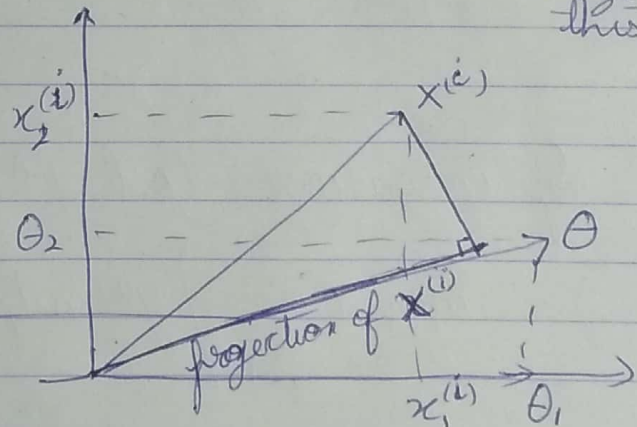 this
x₂⁽ⁱ⁾
X⁽ⁱ⁾
θ₂
θ
projection of X⁽ⁱ⁾
x₁⁽ⁱ⁾
θ₁